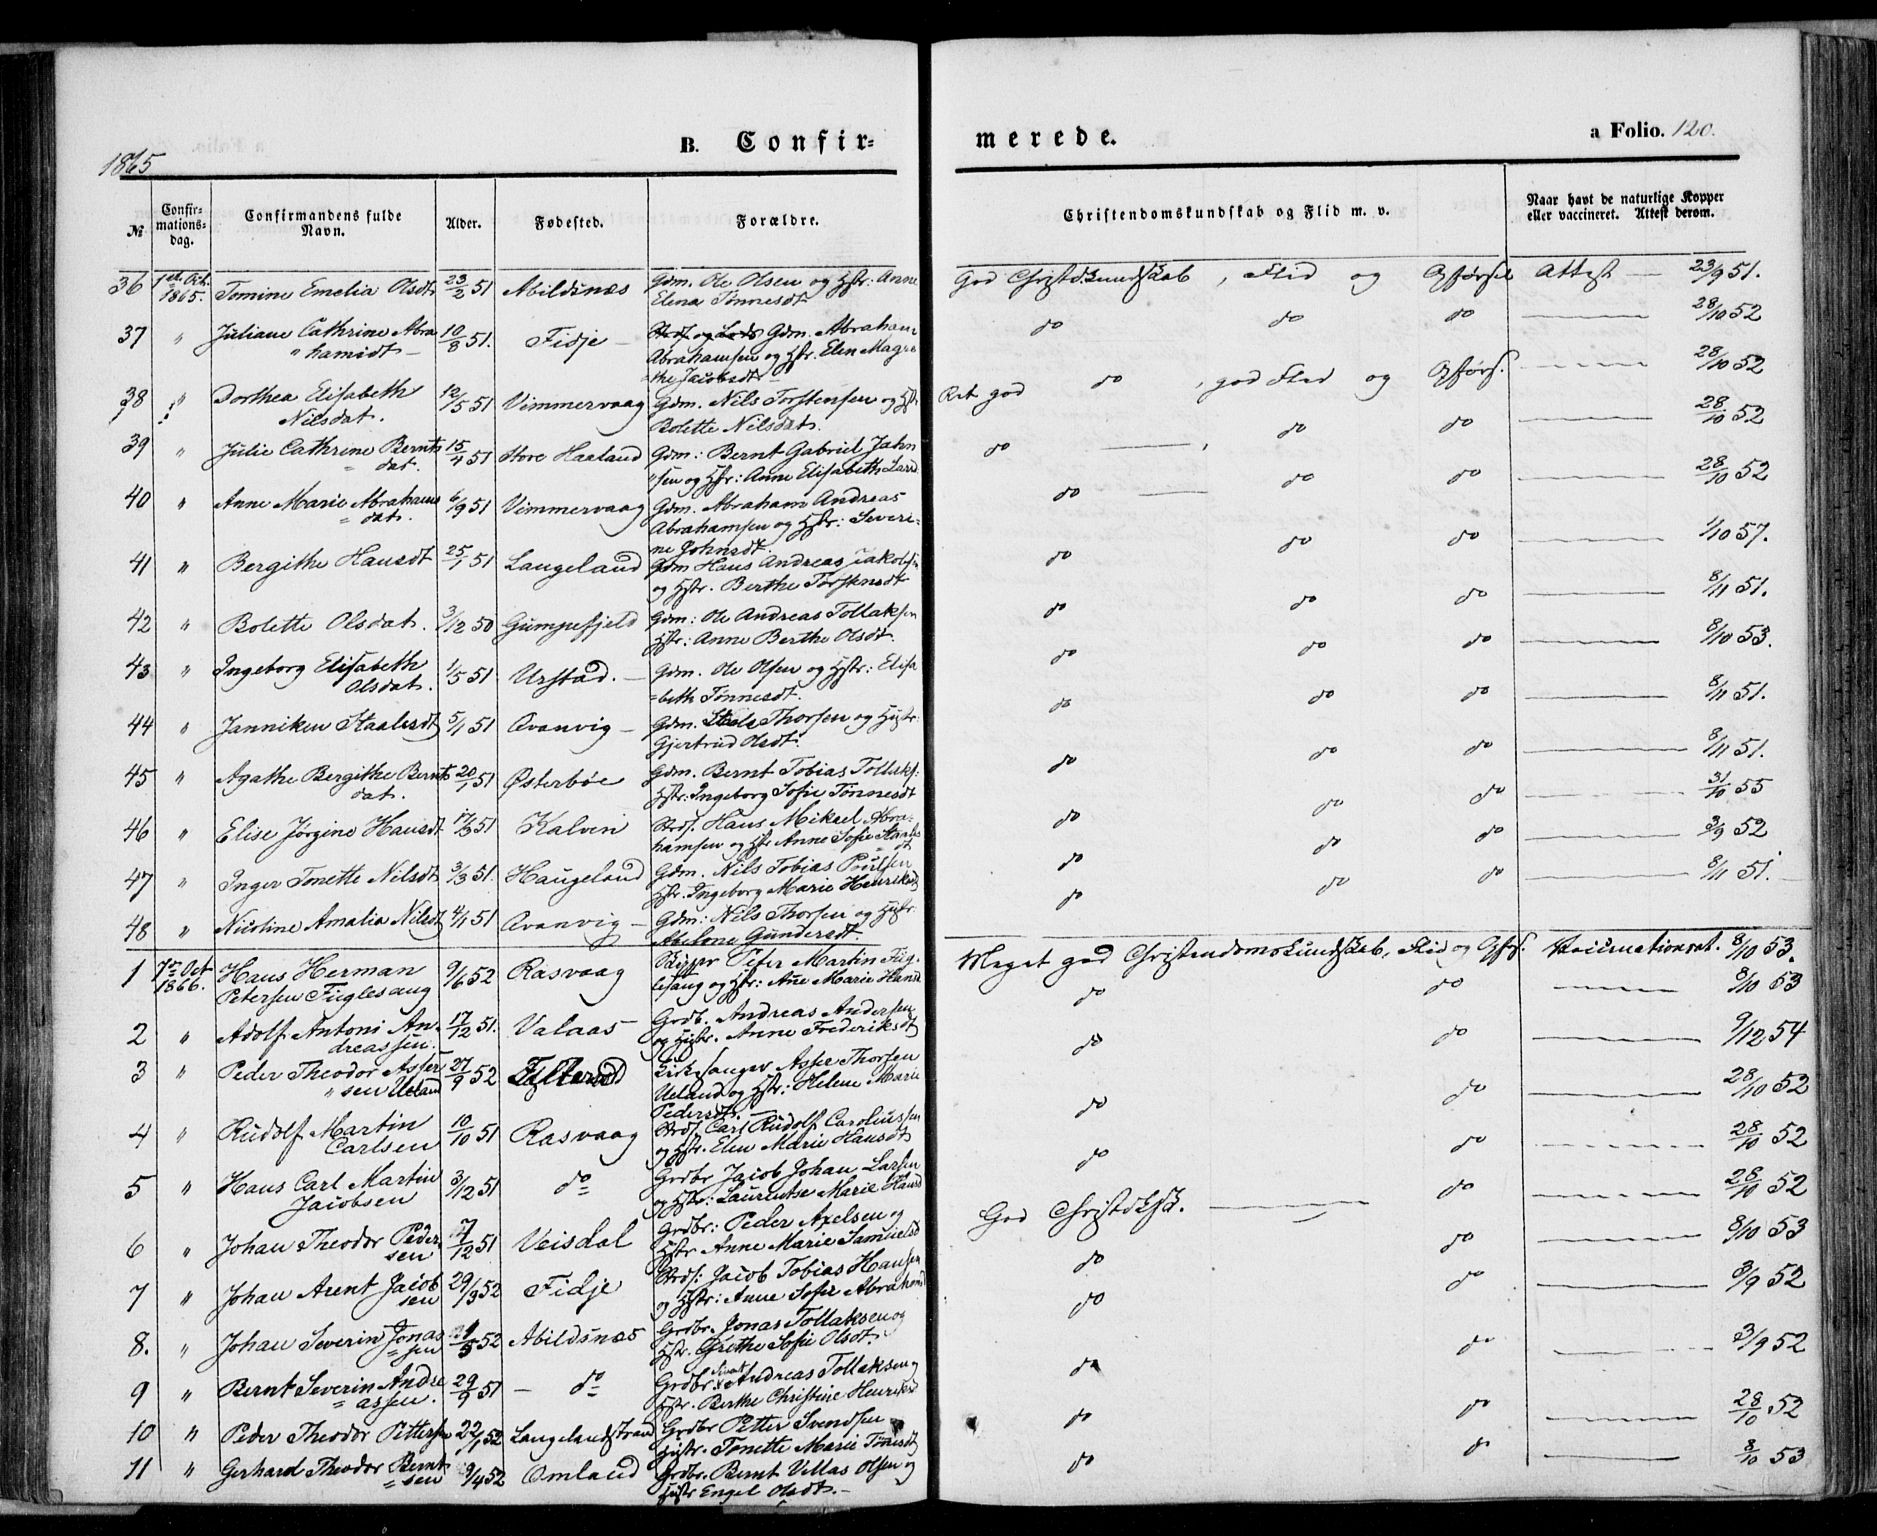 1865
B. Confir-
merede.
a Folio. 120.
№
Confir-
mations-
dag.
Confirmandens fulde
Navn.
Alder.
Fødested.
Forældre.
Christendomskundskab og Flid m. v.
Naar havt de naturlige Kopper
eller vaccineret. Attest derom.
36 1ste Oct. 1865. Tomine Emelia Olsdt 23/2 51 Abildsnæs Gdm. Ole Olsen og Hstr: Anne
Elena Tønnesdt
God Christdkundskab, Flid og Opførsel Attest — 23/9 51.
37 " Juliane Cathrine Abra
hamsdt — 10/8 51. Fidje — Gdm. Abraham
Abrahamsen og Hstr. Elen Magre
the Jacobsdt —
do do do — 28/10 52
38 " Dorthea Elisabeth
Nilsdat. 12/5 51 Vimmervaag Gdm. Nils Torstensen og Hstr
Bolette Nilsdat.
Ret god do, god Flid og Opførs. — 28/10 52
39 " Julie Cathrine Bernts
dat. 15/4 51 Store Haaland Gdm: Bernt Gabriel Jahn
sen og Hstr: Anne Elisabeth Larsd
do — , do do — 28/10 52
40 " Anne Marie Abrahams
dat. 6/9 51 Vimmervaag Gdm. Abraham Andreas
Abrahamsen og Hstr: Severi-
ne Johnsdt.
do — do do — 28/10 52
41 " Bergithe Hansdt 25/1 51 Langeland Gdm Hans Andreas Jakobsen
og Hstr. Berthe Torstensdt
do do do — 1/10 57.
42 " Bolette Olsdat. 3/12 50 Gumpefjeld Gdm: Ole Andreas Tollaksen
Hstr: Anne Berthe Olsdt.
do do do — 8/11 51.
43 " Ingeborg Elisabeth
Olsdat. 1/5 51 Urstad. — Gdm. Ole Olsen og Hstr: Elisa
=beth Tønnesdt.
do do do — 8/10 53.
44 " Janniken Staalesdt 5/1 51 Qvanvig — Gdm. Thorsen og Hustr:
Gjertrud Olsdt.
do do do — 8/11 51.
45 " Agathe Bergithe Bernts
dat. 20/1 51 Østerbøe Gdm. Bernt Tobias Tollaks:
Hstr: Ingeborg Sofie Tønnesdt
do do do — 8/11 51.
46 " Elise Jørgine Hansdt 17/3 51 Kalven Strds. Hans Mikael Abra-
hamsen og Hstr Anne Sofie Staales
dt
do do do — 31/10 55
47 " Inger Tonette Nilsdt 3/3 51. Haugeland Gdm. Nils Tobias Poulsen
Hstr. Ingeborg Marie Henriksdt
do do do — 3/9 52
48 " Nicoline Amalia Nilsdt 4/1 51 Qvanvig — Gdm: Nils Thorsen og Hustr.
Abelone Gundersdt.
do do do — 8/11 51.
1 7de Oct 1866. Hans Herman
Petersen Fuglesang 9/6 52 Rasvaag Skipper Peter Martin Fug
lesang og Hstr: Ane Marie Hansd
Meget god Christendomskundskab, Flid og Opfs. Vaccinationsat. 8/10 53.
2 " Adolf Antoni An-
dreassen. 17/12 51. Valaas — Grdb. Andreas Andersen
og Hustr. Anne Frederiksdt
do do — 8/10 53
3 " Peder Theodor Asser
sen Ueland 27/9 52 Kirkesanger Asser Thorsen
Ueland og Hstr: Helene Marie
Pedersdt. —
do do — 9/12 54
4 " Rudolf Martin
Carlsen 10/10 51 Rasvaag Strds. Carl Rudolf Caroliussen
og Hstr. Elen Marie Hansdt
do do — 28/10 52
5 " Hans Carl Martin
Jacobsen 3/12 51 do Grdbr Jacob Johan Larsen
og Hstr: Laurentse Marie Hansd
do do — 28/10 52
6 " Johan Theodor Peder
sen 7/12 51 Veisdal Grdbr: Peder Axelsen og
Hstr Anne Marie Samuelsd
God Christdksk. — do — 28/10 52
7 " Johan Arent Jacob
sen 29/3 52 Fidje Strds: Jacob Tobias Hansen
og Hstr: Anne Sofie Abrahamsd
do do — 8/10 53
8. " Johan Severin Jonas
sen 52 Abildsnæs Grdbr. Jonas Tollaksen og
Hstr. Grethe Sofie Olsdt.
do do — 3/9 52
9 " Bernt Severin Andre
=assen. 29/9 51 — do Grdbr. Andreas Tollaksen og
Hstr. Berthe Christine Henriksd
do do — 3/9 52
10 " Peder Theodor Pettersen 22/1 52 Langelandstrand Grdbr Petter Svendsen
Hustr. Tonette Marie Tønesdt
do do — 28/10 52
11 " Gerhard Theodor Bernt
=sen 9/4 52 Omland Grdbr. Bernt Villas Olsen og
Hustr Engel Olsdt. —
do do — 8/10 53